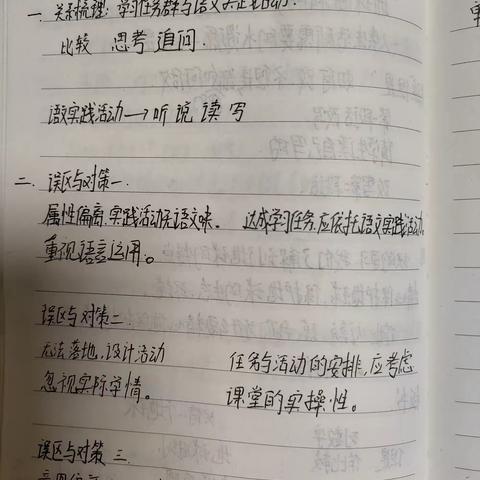 一. 关系梳理：学习任务群与语文实践活动.
比较 思考 追问.
语文实践活动→听 说 读 写
二. 误区与对策一.
属性偏离.实践活动无语文味. 达成学习任务,应依托语文实践活动,
重视语言运用。
误区与对策二.
无法落地,设计活动 任务与活动的安排,应考虑
忽视实际学情。 课堂的实操性。
误区与对策 三.